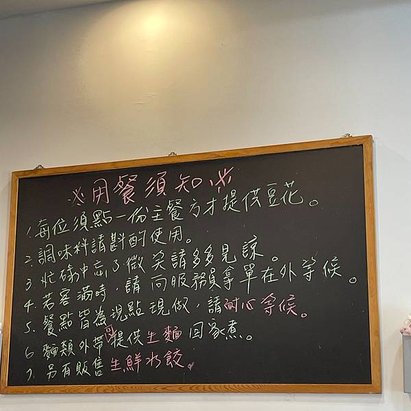 ※用餐須知※
1. 每位須點一份主餐方才提供豆花。
2. 調味料請斟酌使用。
3. 忙碌中忘了微笑請多多見諒。
4. 若客滿時，請向服務員拿單在外等候。
5. 餐點皆為現點現做，請耐心等候。
6. 麵類外帶提供生麵回家煮。
7. 另有販售生鮮水餃。